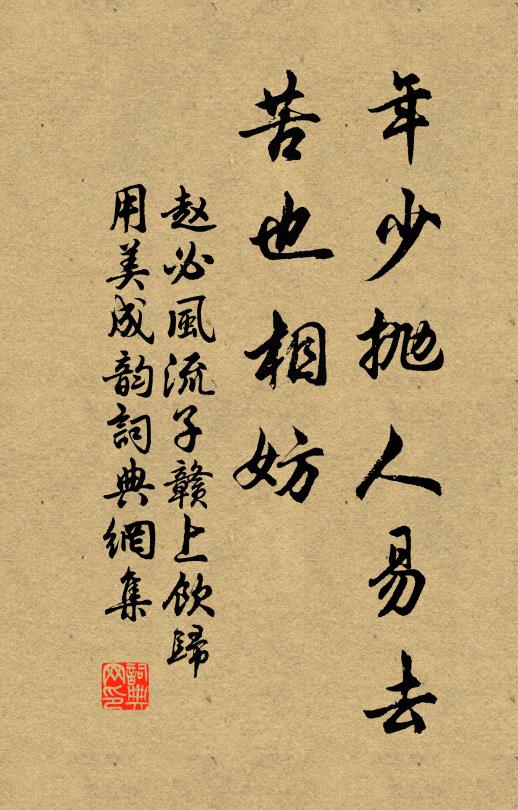 年少抛人易去
苦也相妨
赵必風流子贛上飲歸
用美成韵詞典網集
詞典网印